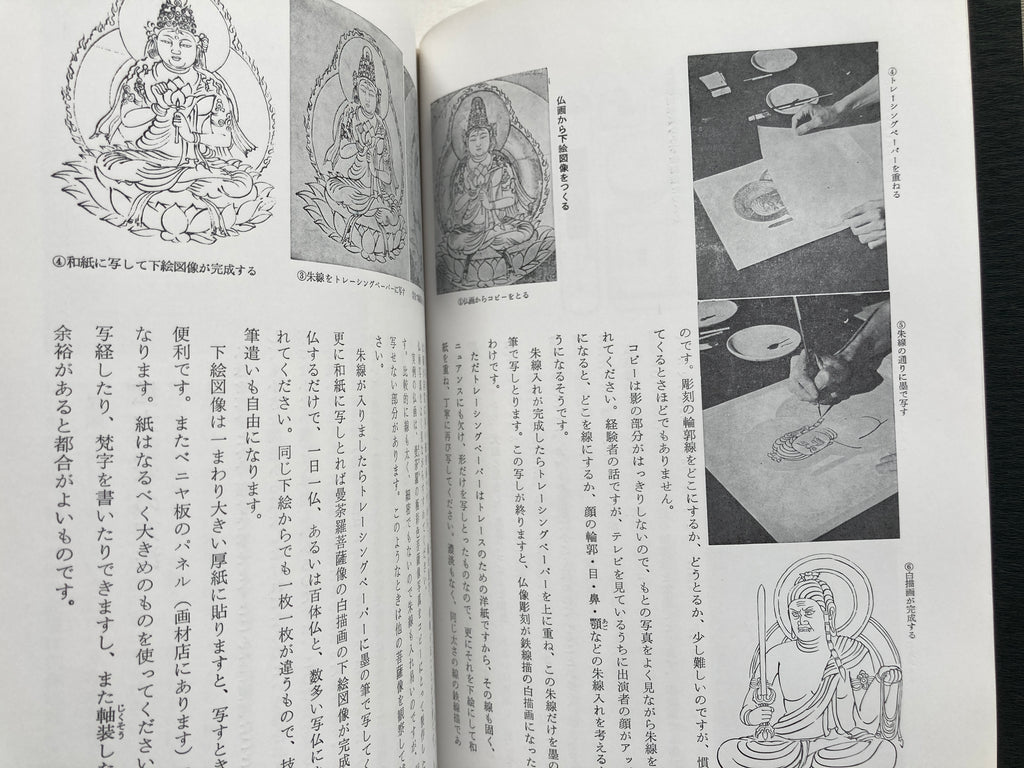 ④トレーシングペーパーを重ねる
⑤朱線の通りに墨で写す
⑥白描画が完成する
のです。彫刻の輪郭線をどこにするか、どうとるか、少し難しいのですが、慣
てくるとさほどでもありません。
コピーは影の部分がはっきりしないので、もとの写真をよく見ながら朱線を
れてください。経験者の話ですが、テレビを見ているうちに出演者の顔がアッ
になると、どこを線にするか、顔の輪郭・目・鼻・顎などの朱線入れを考える
あご
うになるそうです。
朱線入れが完成したらトレーシングペーパーを上に重ね、この朱線だけを墨の
筆で写しとります。この写しが終りますと、仏像彫刻が鉄線描の白描画になった
わけです。
ただトレーシングペーパーはトレースのための洋紙ですから、その線も固く、
ニュアンスにも欠け、形だけを写しとったものなので、更にそれを下絵にして和
紙を重ね、丁寧に再び写してください。濃淡もなく、同じ太さの線の鉄線描であ
仏画から下絵図像をつくる
①仏画からコピーをとる
③朱線をトレーシングペーパーに写す
④和紙に写して下絵図像が完成する
す。比較的に線も太く、細密でもないので朱線も入れ易いのですが
写せない部分があります。このようなときは他の菩薩像を観察して
さい。
朱線が入りましたらトレーシングペーパーに墨の筆で写してく
更に和紙に写しとれば曼荼羅菩薩像の白描画の下絵図像が完成
仏するだけで、一日一仏、あるいは百体仏と、数多い写仏に
れてください。同じ下絵からでも一枚一枚が違うもので、技
筆遣いも自由になります。
下絵図像は一まわり大きい厚紙に貼りますと、写すとき
便利です。またベニヤ板のパネル（画材店にあります）
なります。紙はなるべく大きめのものを使ってください
写経したり、梵字を書いたりできますし、また軸装し
じくそう
余裕があると都合がよいものです。